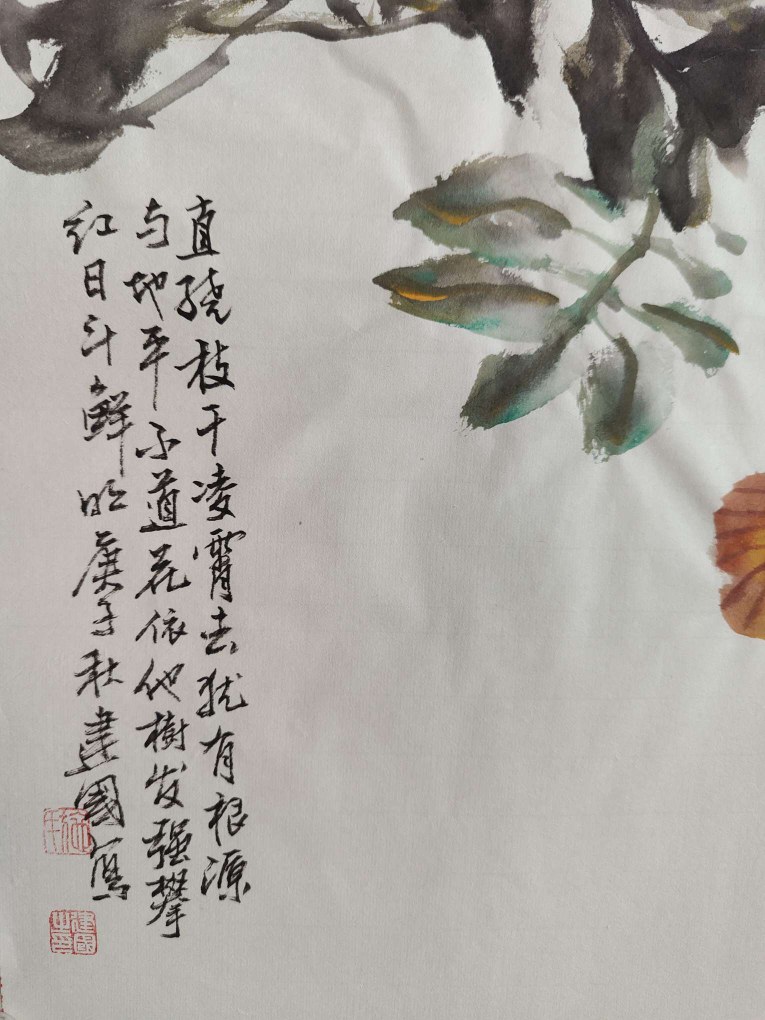 直绕枝干凌霄去犹有根源
与地平不道花依他樹发强攀
红日斗鲜明庚子秋建國写
建國